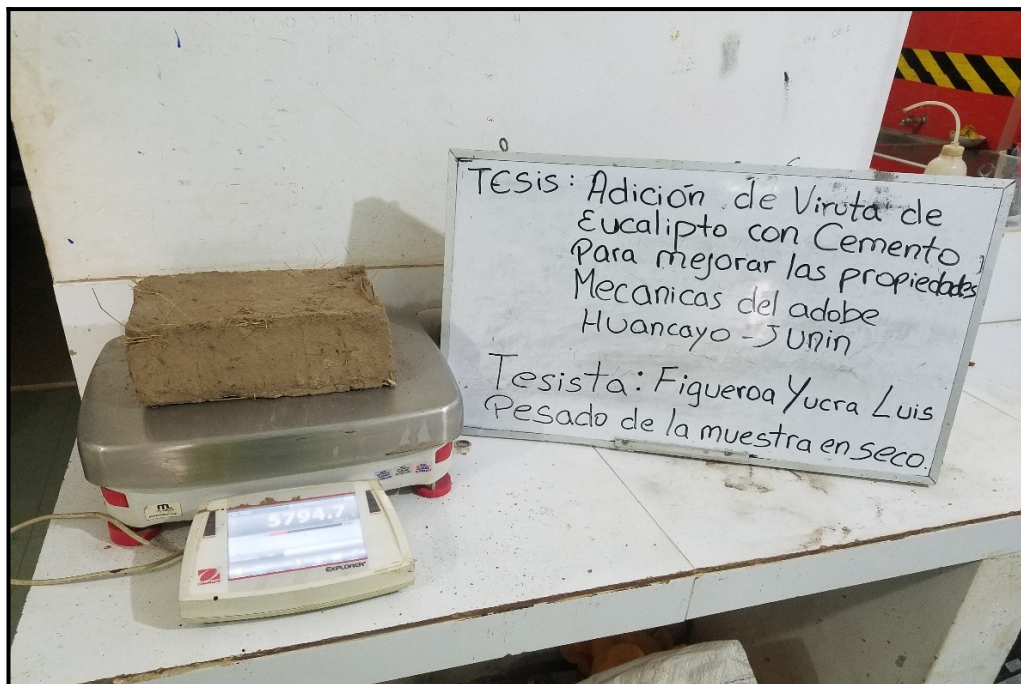 TESis: Adición de Viruta de
Eucalipto con Cemento,
Para mejorar las propiedades
Mecanicas del adobe
Huancayo - Junin
Tesista: Figueroa Yucra Luis
Pesado de la muestra en seco.
5794.7
EXPLORER